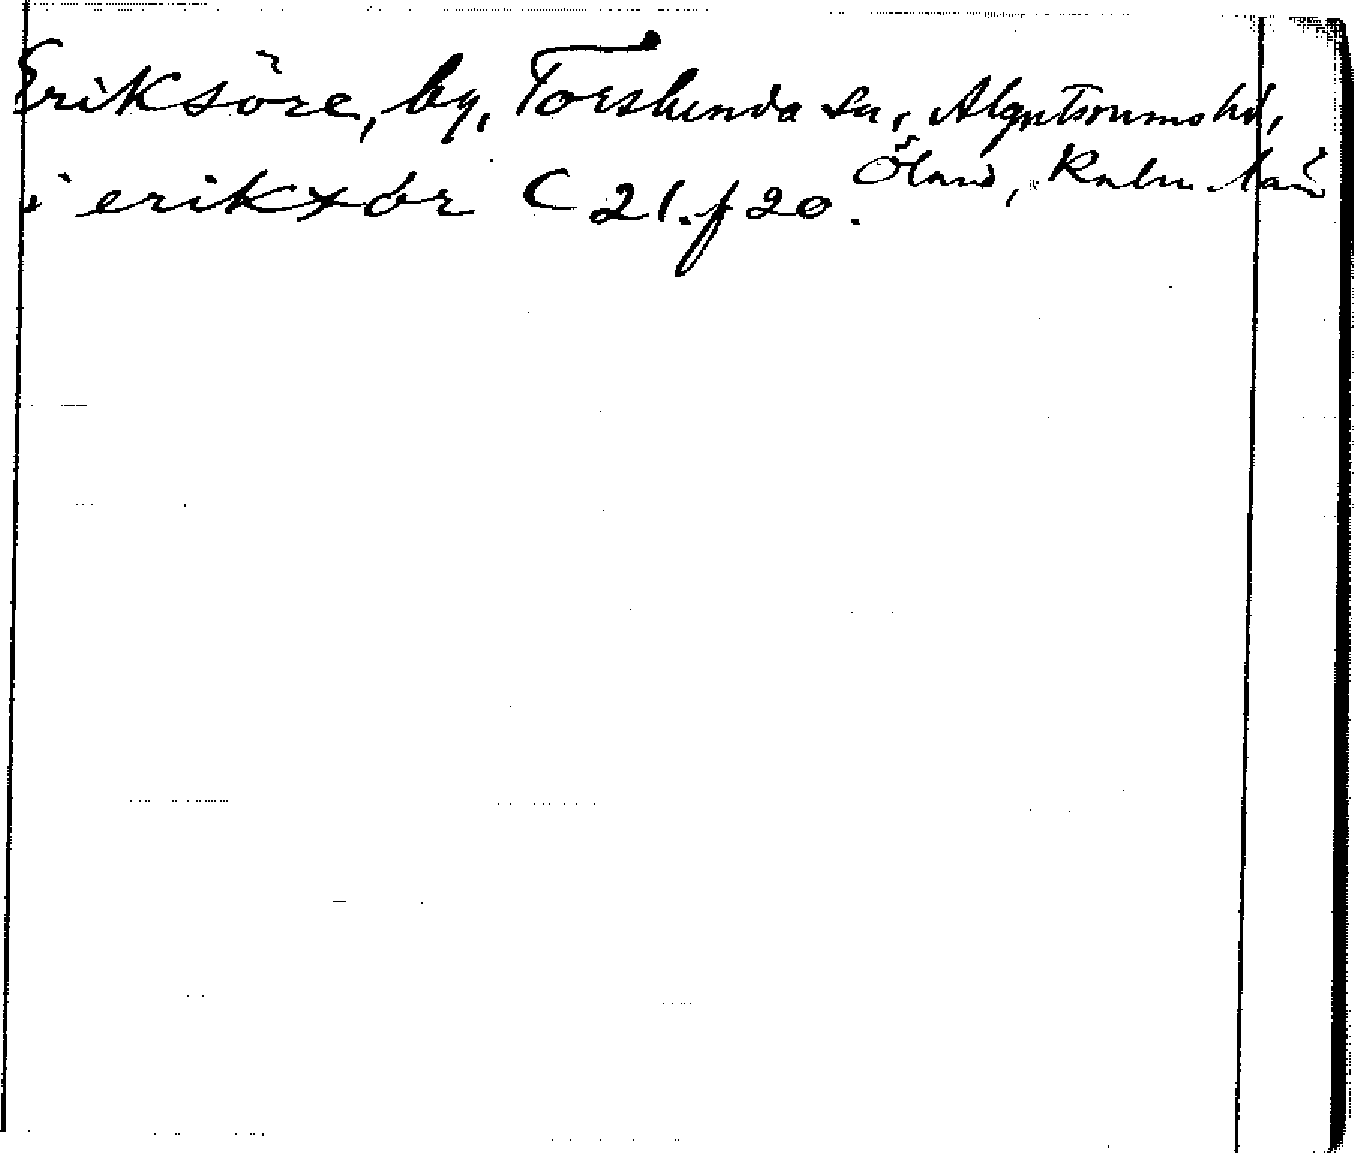 Eriksöre, by, Torslunda sn, Algutsrums hd,
Öland, Kalm län
i erikxór C 21. f 20.